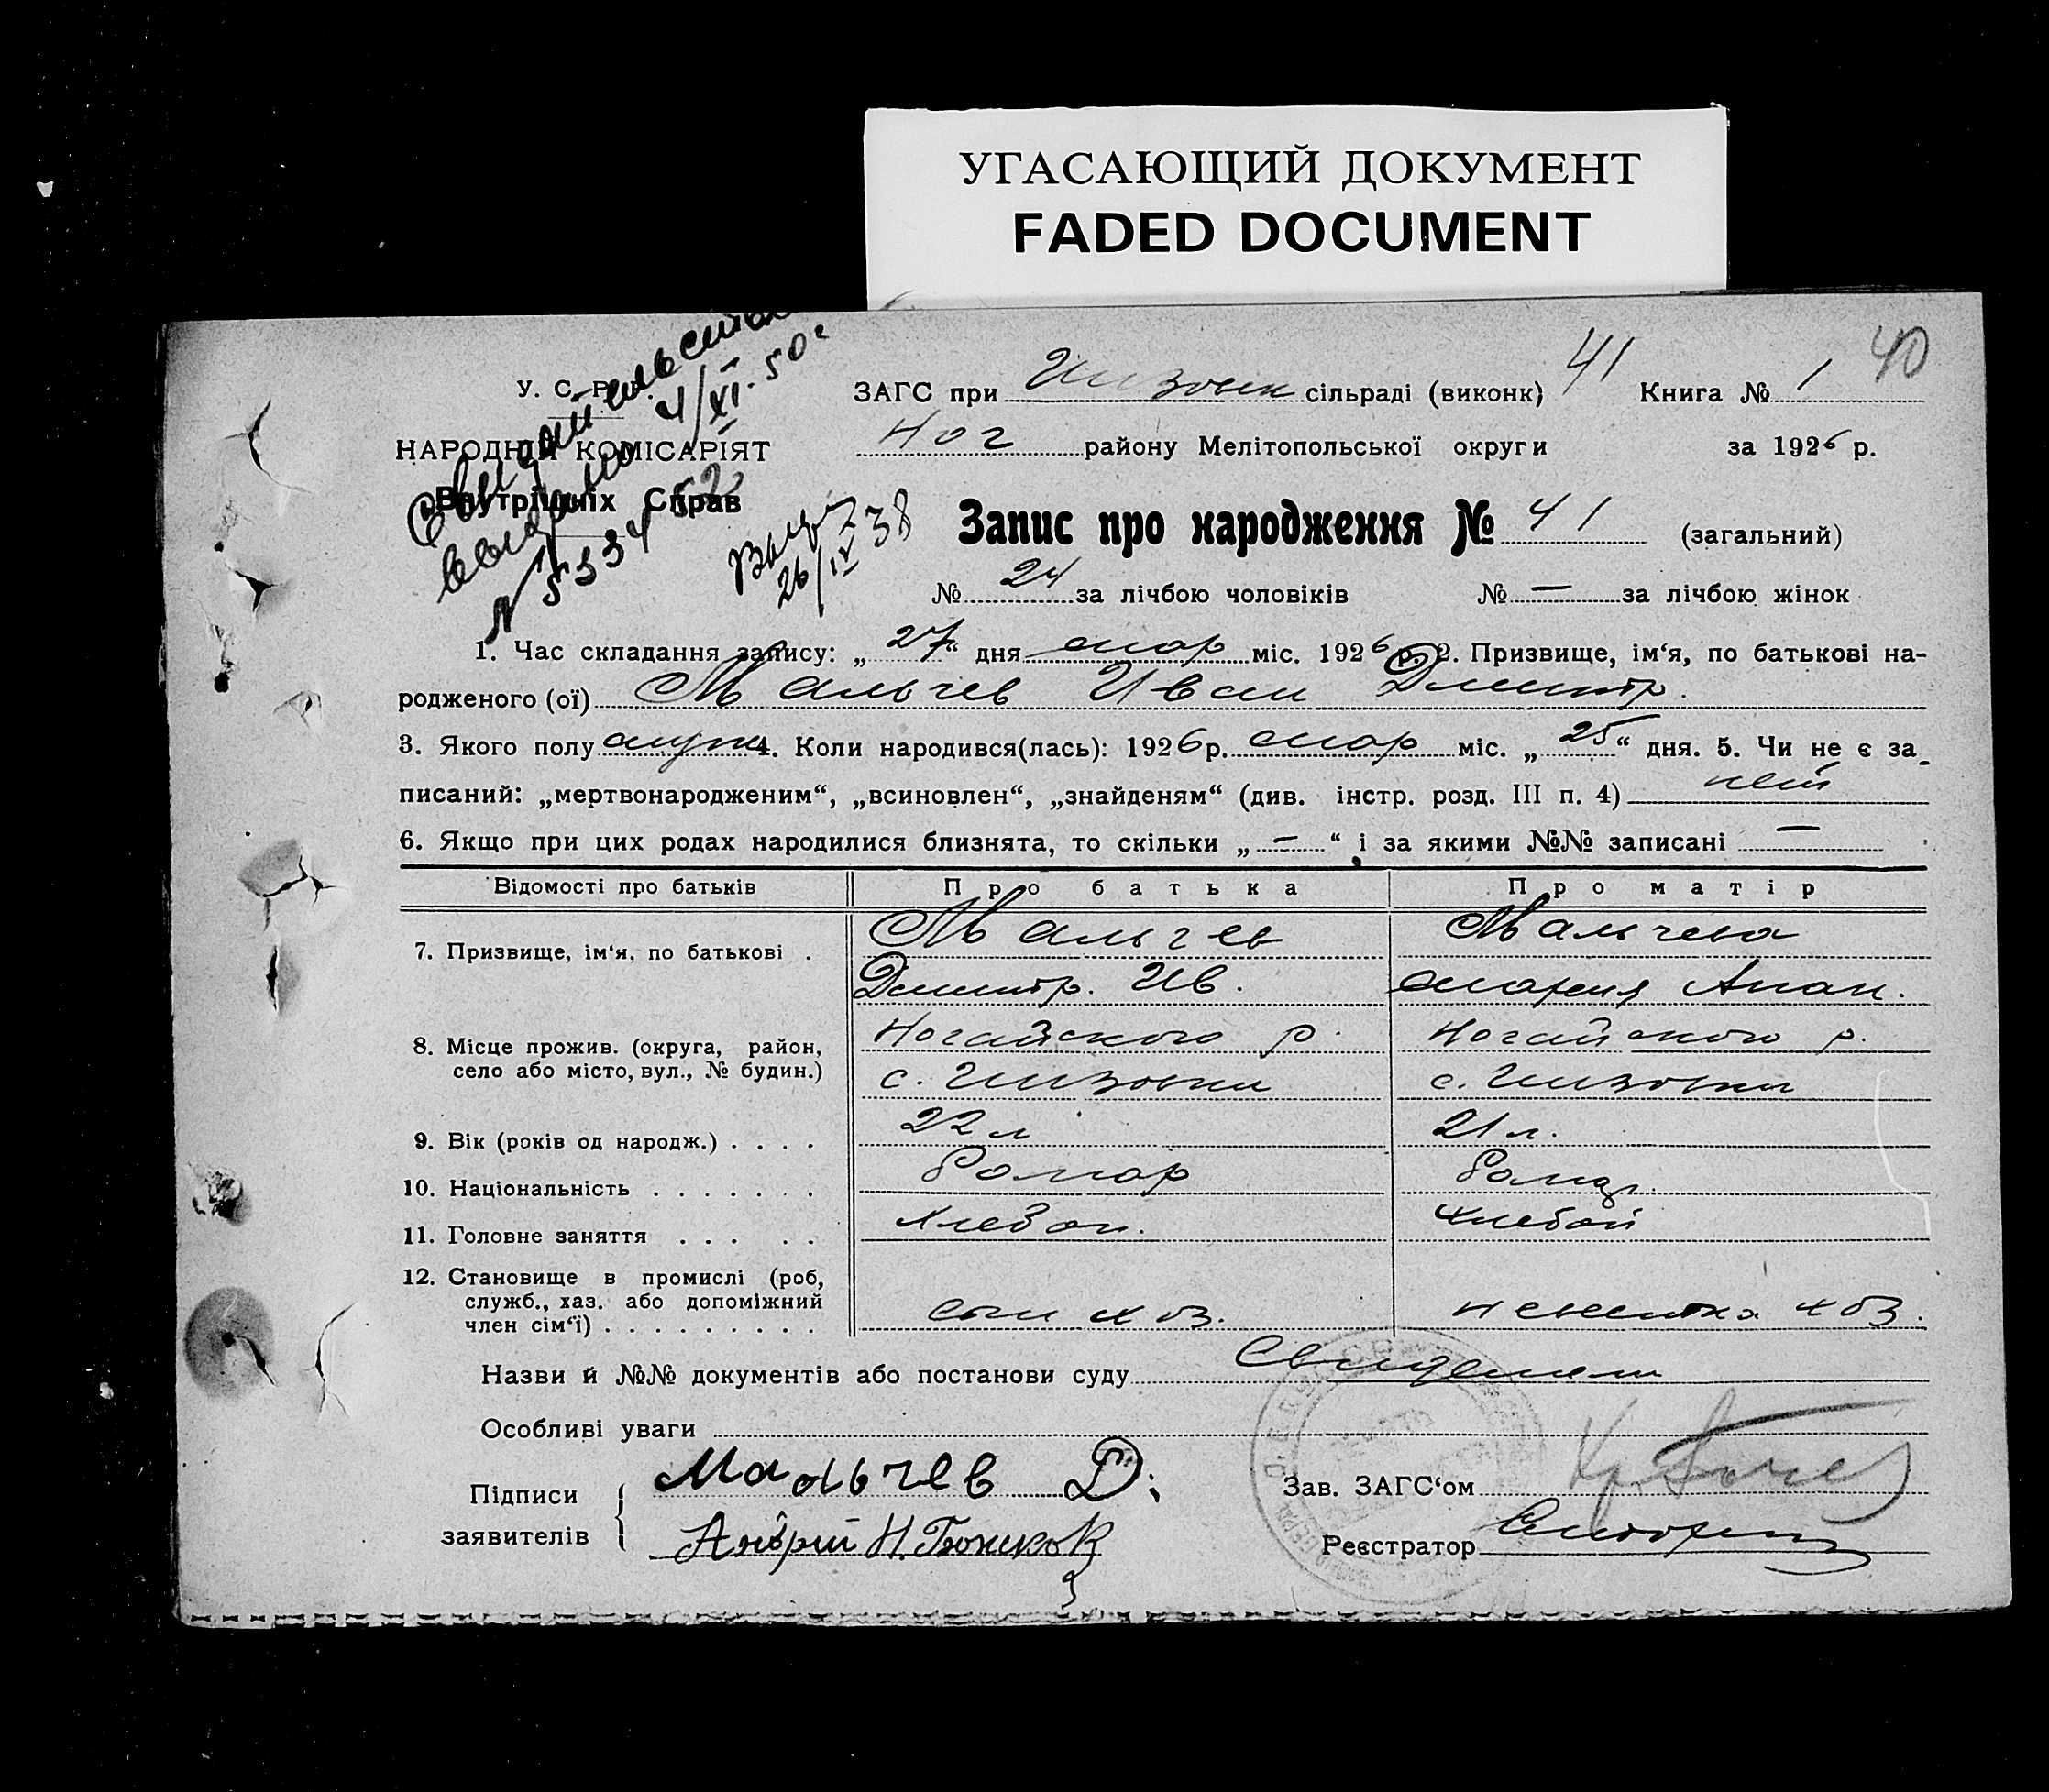 УГАСАЮЩИЙ ДОКУМЕНТ
FADED DOCUMENT
У. С. Р. Р.
ЗАГС при сільраді (виконк) 41 Книга № 1 40
НАРОДНІЙ КОМІСАРІЯТ
Ног району Мелітопольської округи за 1926 р.
Внутрішніх Справ
4/XI-50г
26/IV 38
Запис про народження № 41 (загальний)
№ 24 за лічбою чоловіків № — за лічбою жінок
1. Час складання запису: „27“ дня мар міс. 1926 р. 2. Призвище, ім‘я, по батькові на-
родженого (ої) Мальчев Иван Дмитр.
3. Якого полу муж 4. Коли народився(лась): 1926 р. мар міс. „25“ дня. 5. Чи не є за-
писаний: „мертвонародженим“, „всиновлен“, „знайденям“ (див. інстр. розд. III п. 4) нет
6. Якщо при цих родах народилися близнята, то скільки „—“ і за якими №№ записані —
Відомості про батьків Про батька Про матір
7. Призвище, ім‘я, по батькові . Мальчев Мальчева
Дмитр. Ив. Мария Апан.
8. Місце прожив. (округа, район, Ногайского р. Ногайского р.
село або місто, вул., № будин.) с. с.
9. Вік (років од народж.) . . . . 22 л 21 л.
10. Національність . . . . . . .
11. Головне заняття . . . . .
12. Становище в промислі (роб,
служб., хаз. або допоміжний
член сім‘ї) . . . . . . . . . сын хоз. невестка хоз.
Назви й №№ документів або постанови суду Свидетели
Особливі уваги
Підписи Мальчев Д. Зав. ЗАГС‘ом
заявителів Реєстратор